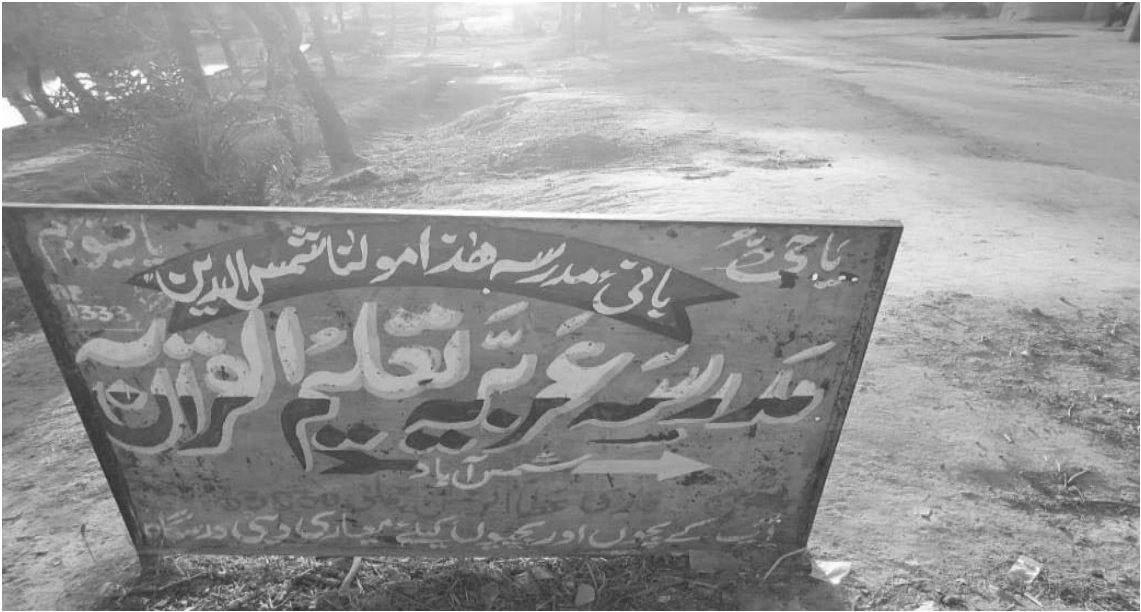 یا حیُّ یا قیوم
بانیٔ مدرسہ ھٰذا مولنا شمس الدینؒ
0333
مَدرسَہ عَربیَّہ تعلیمُ القرآن
شمس آباد
آپ کے بچوں اور بچیوں کیلئے معیاری دینی درسگاہ